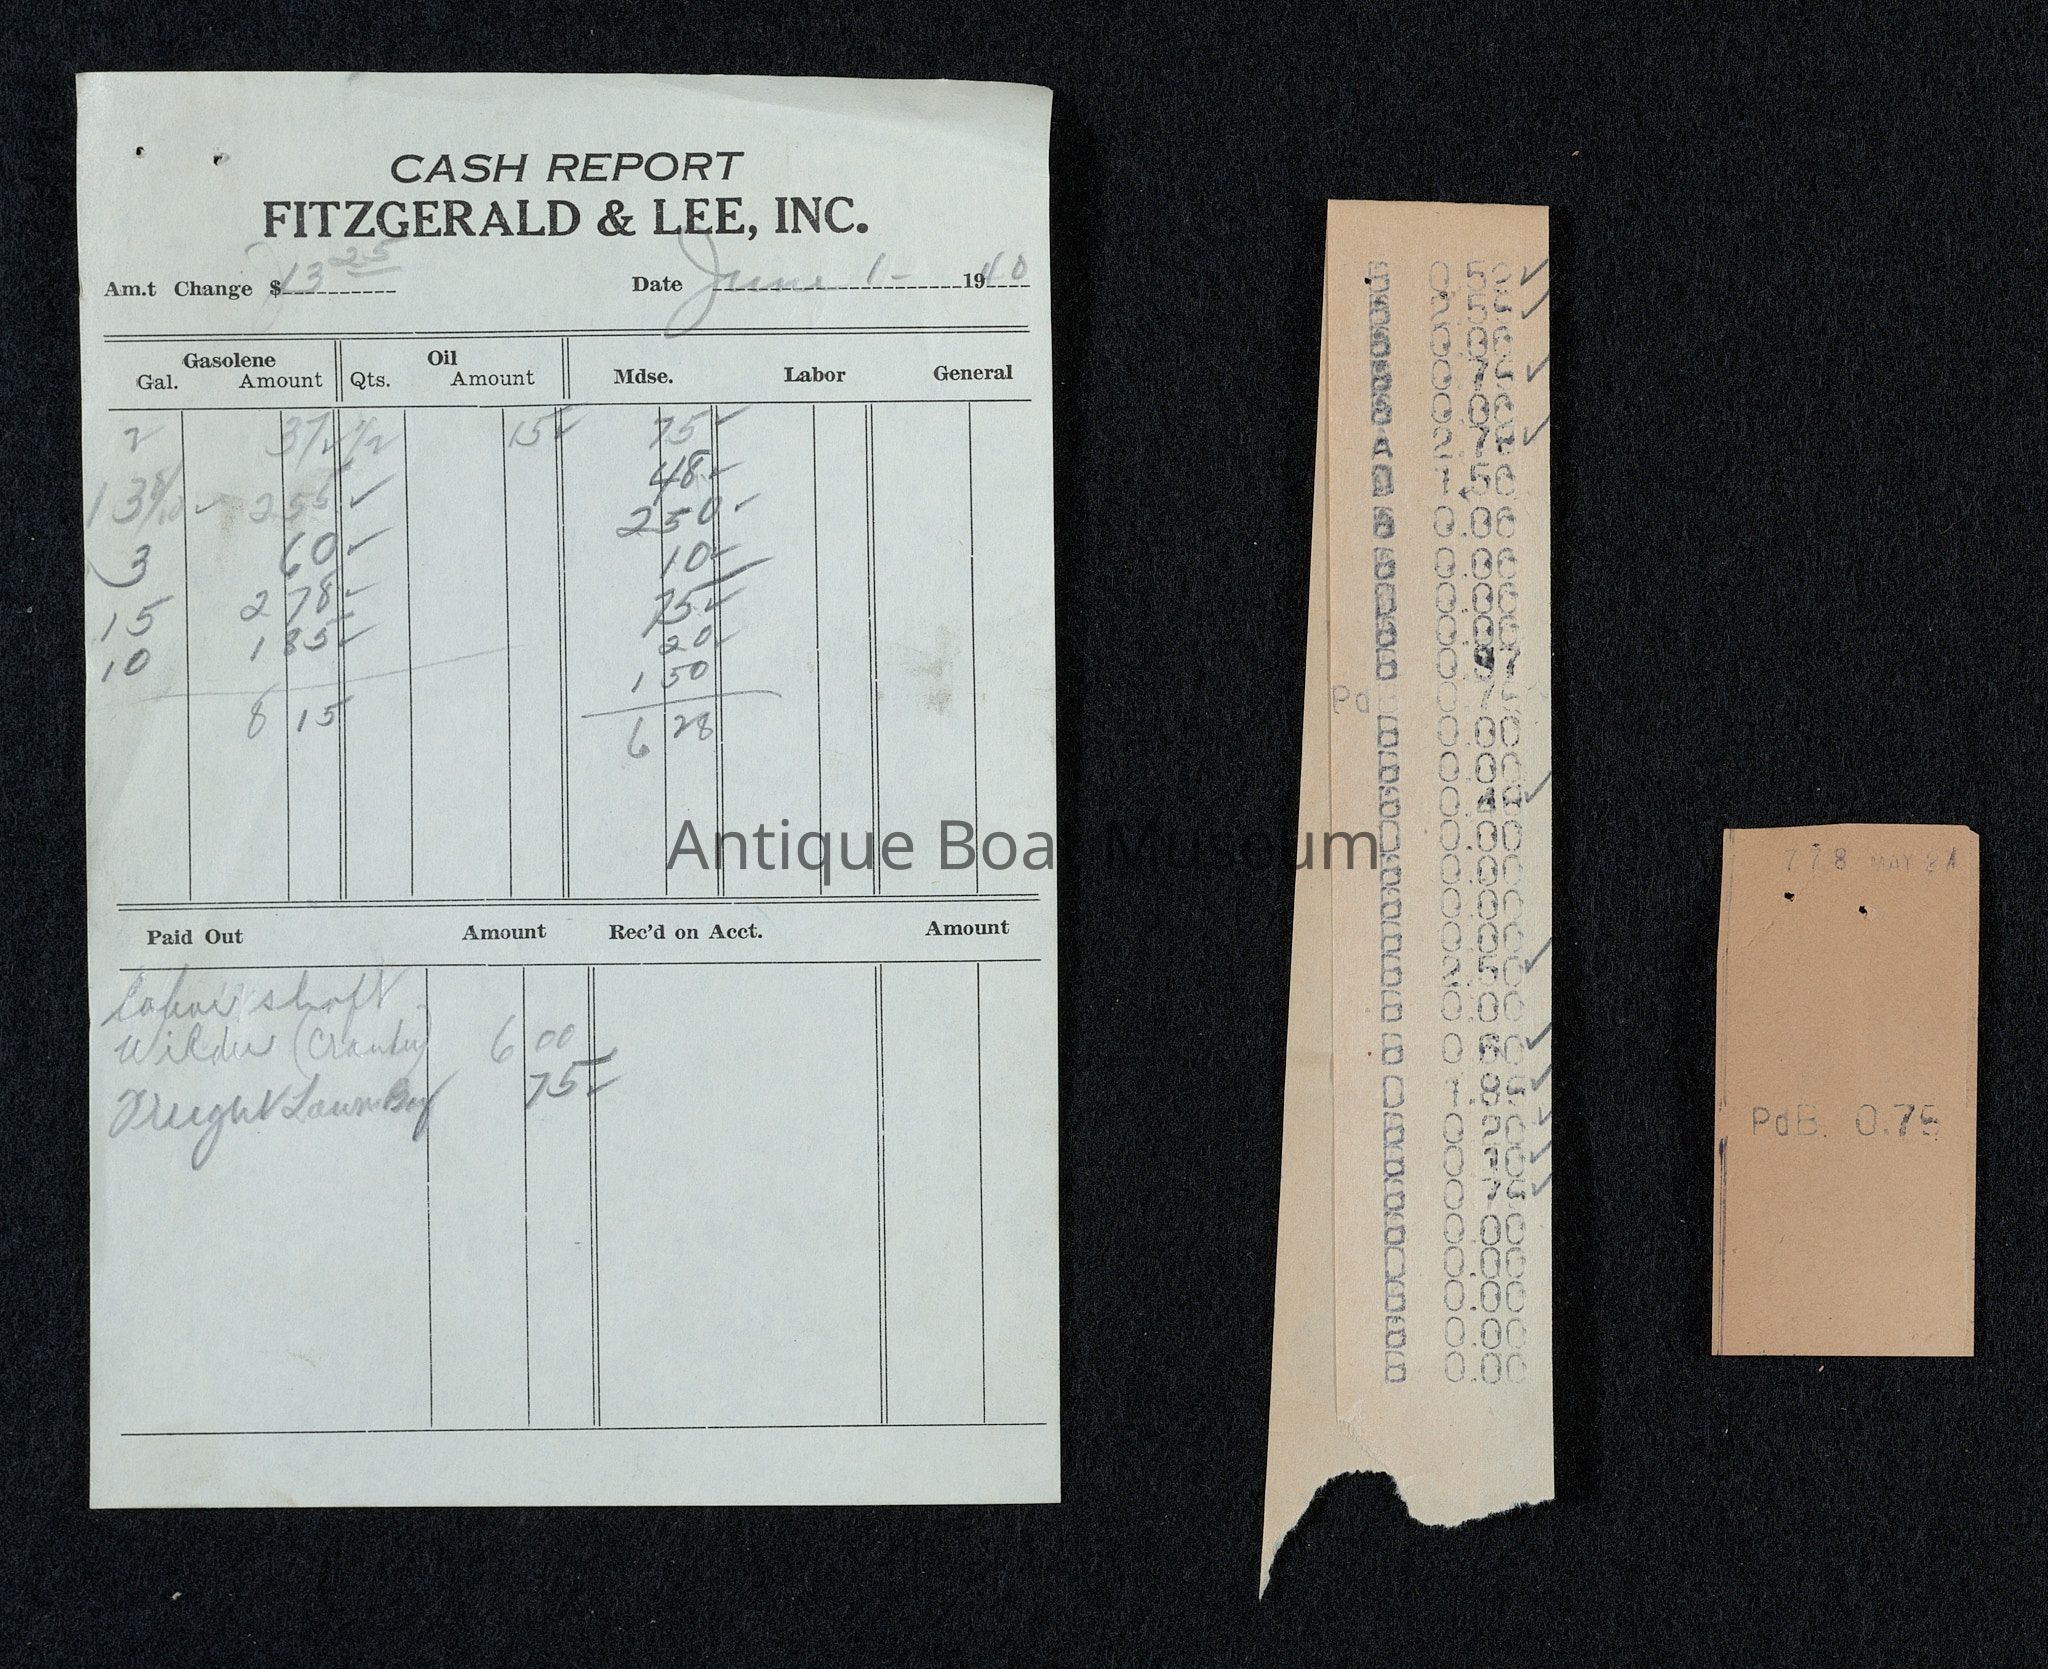 CASH REPORT
FITZGERALD & LEE, INC.
Am.t Change $ 13 25 Date June 1- 1940
Gasolene Oil
Gal. Amount Qts. Amount Mdse. Labor General
2 37 ✓ 1/2 15 ✓ 75 ✓
48 ✓
13 8/10 ✓ 2 55 ✓
2 50 ✓
3 60 ✓ 10 ✓
15 2 78 ✓ 75 ✓
10 1 85 ✓ 20 ✓
1 50
8 15 6 28
Paid Out Amount Rec'd on Acct. Amount
Labor shaft
Wilder 6 00
Freight Laundry 75 ✓
0.52 ✓
2.55 ✓
0.00
0.75 ✓
0.00
2.78 ✓
1.50
0.00
0.00
0.00
0.00
Pd 0.75
0.00
0.00
0.48 ✓
0.00
0.00
0.00
0.00
2.50 ✓
0.00
0.60 ✓
1.85 ✓
0.20 ✓
0.10 ✓
0.75 ✓
0.00
0.00
0.00
0.00
0.00
778 MAY
PdB. 0.75
Antique Boat Museum